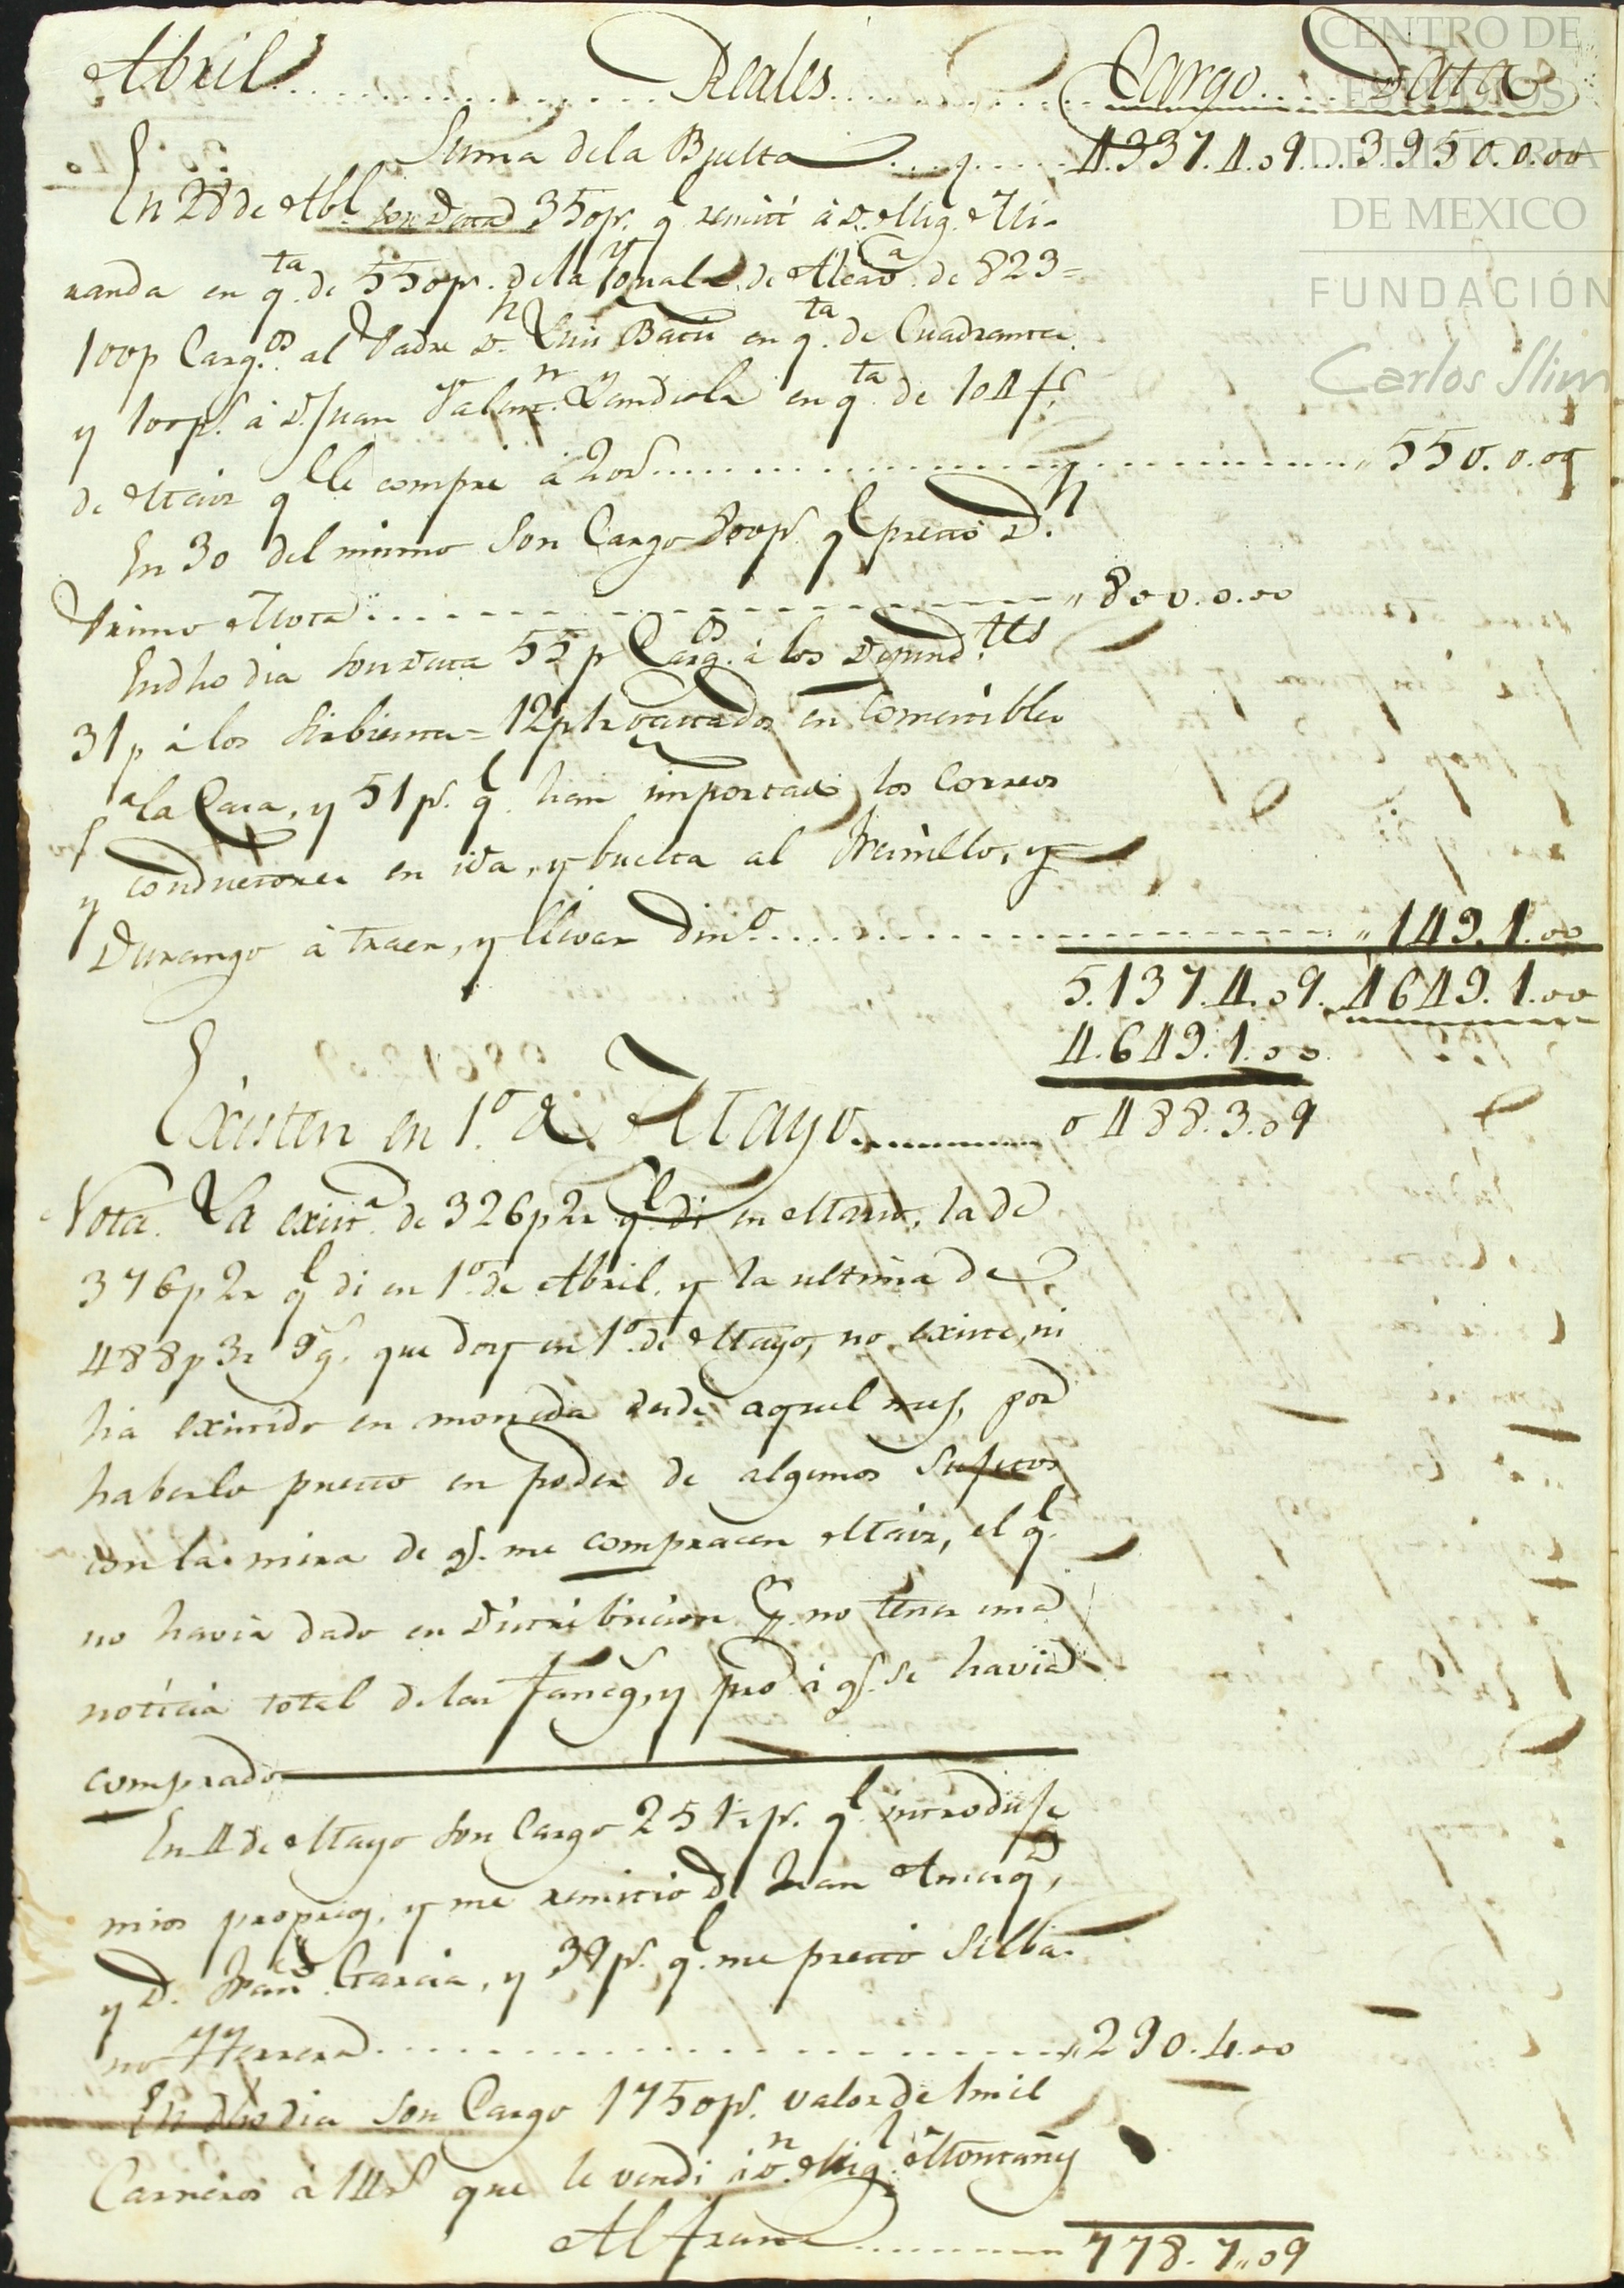 Abril ........ Reales ........ Cargo .... Data
Suma de la Buelta ........ 4.337.4.09 ... 3.950.0.00
En 28 de Abl. son Data 350ps. q.l remití à D. Mig. Mi-
randa en q.ta de 550ps. de la de de 823=
100p Carg.os al Padre D.n Luis en q.ta de Cuadrante
y 100ps. à D. Juan Valent.n Landiola en q.ta de 104 fs.
de Maiz q.l le compré à 20rs ........ ,, 550.0.09
En 30 del mismo Son Cargo 800ps. q.l prestó D.n
Primo Mota ........ ,, 800.0.00
En dho dia son Data 55p Carg.os à los Depend.tes
31p à los Sirbientes = 12p 1r gastados en Comestibles
à la Casa, y 51ps. q.l han importado los Correos
y conductores en ida, y buelta al Fresnillo, y
Durango à traer, y llevar Din.o ........ ,, 149.1.00
5.137.4.09. 4649.1.00
4.649.1.00
Existen en 1.o de Mayo ........ 0488.3.09
Nota. La exist.a de 326p2r q.l di en Marzo, la de
376p2r q.l di en 1.o de Abril, y la ultima de
488p3r 9g.s que doy en 1.o de Mayo, no existe, ni
ha existido en moneda desde aquel mes, por
haberlo puesto en poder de algunos Sujetos
con la mira de q.e me compracen Maiz, el q.l
no havia dado en Distribucion p.r no tener una
noticia total de las faneg.s, y prò à q.e se havia
comprado
En 4 de Mayo son Cargo 251 ps. q.l introduje
mios propios, y me remitio D. Juan
y D. Fran.co Garcia, y 39ps. q.l me prestó Silba-
no Herrera ........ ,, 290.4.00
En dho dia son Cargo 1750ps. valor de 1mil
Carneros à 14rs que le vendi à D.n Mig.l Montañez
Al frente ........ 778.7,,09